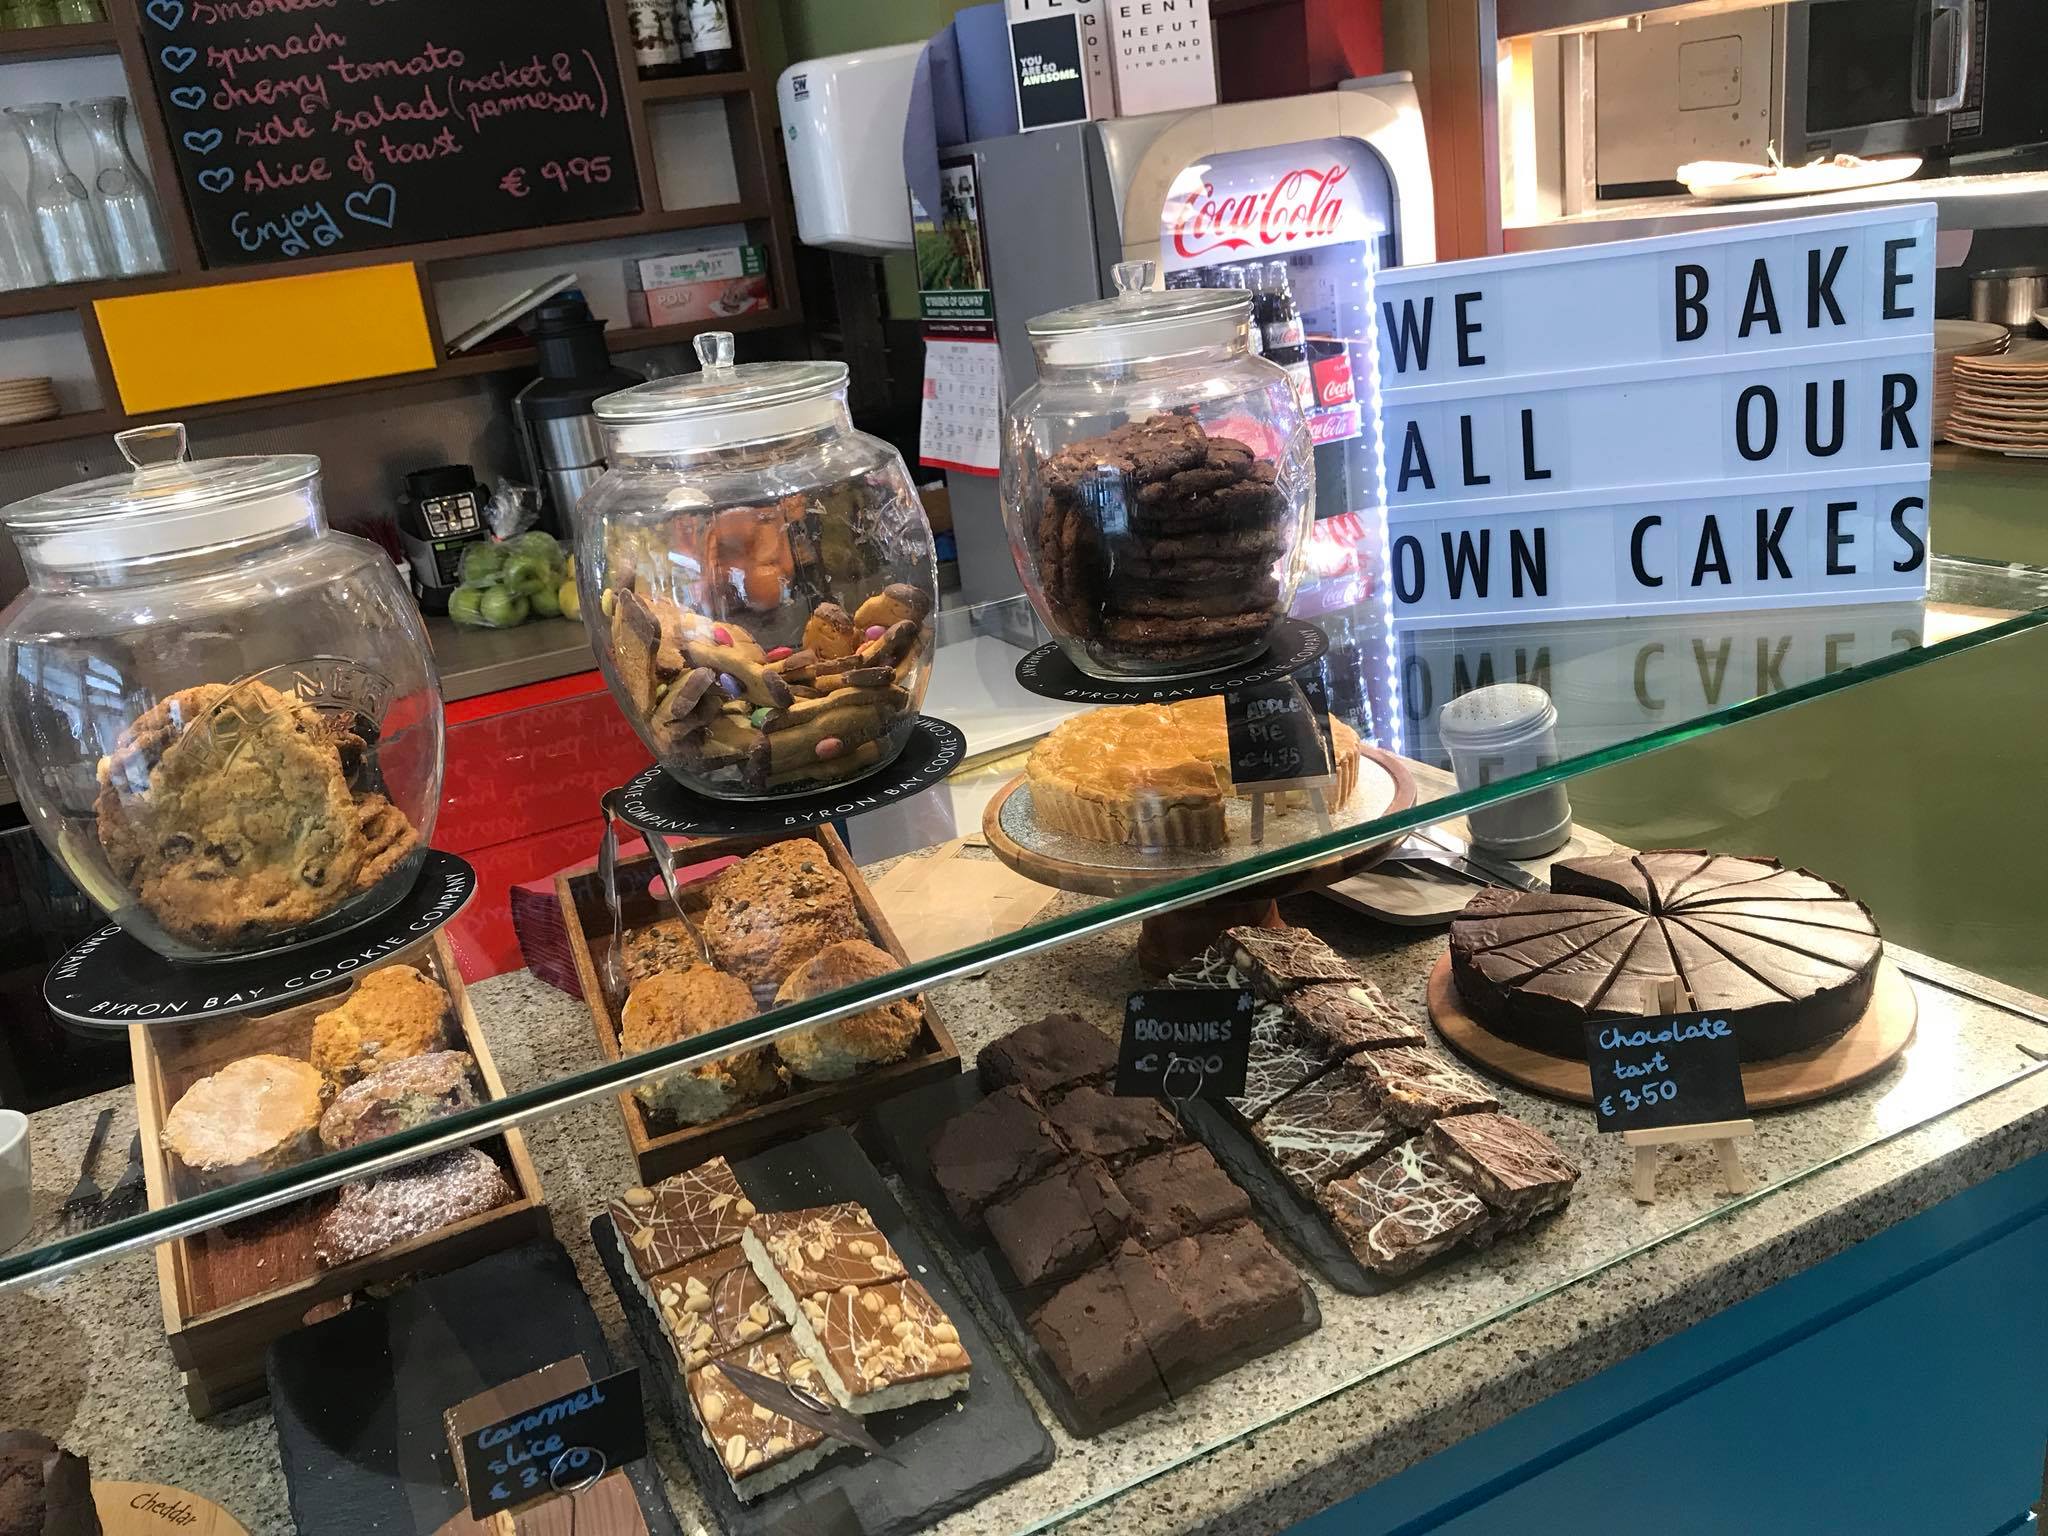 spinach
cherry tomato
side salad (rocket &
parmesan)
slice of toast
€ 9.95
Enjoy
YOU
ARE SO
AWESOME.
EENT
HEFUT
UREAND
ITWORKS
CW
POLY
O'BRIENS OF GALWAY
Coca-Cola
WE BAKE
ALL OUR
OWN CAKES
BYRON BAY COOKIE COMPANY
BYRON BAY COOKIE COMPANY
BYRON BAY COOKIE COMPANY
APPLE
PIE
€4.75
BROWNIES
Chocolate
tart
€ 3.50
Caramel
slice
€ 3.50
Cheddar